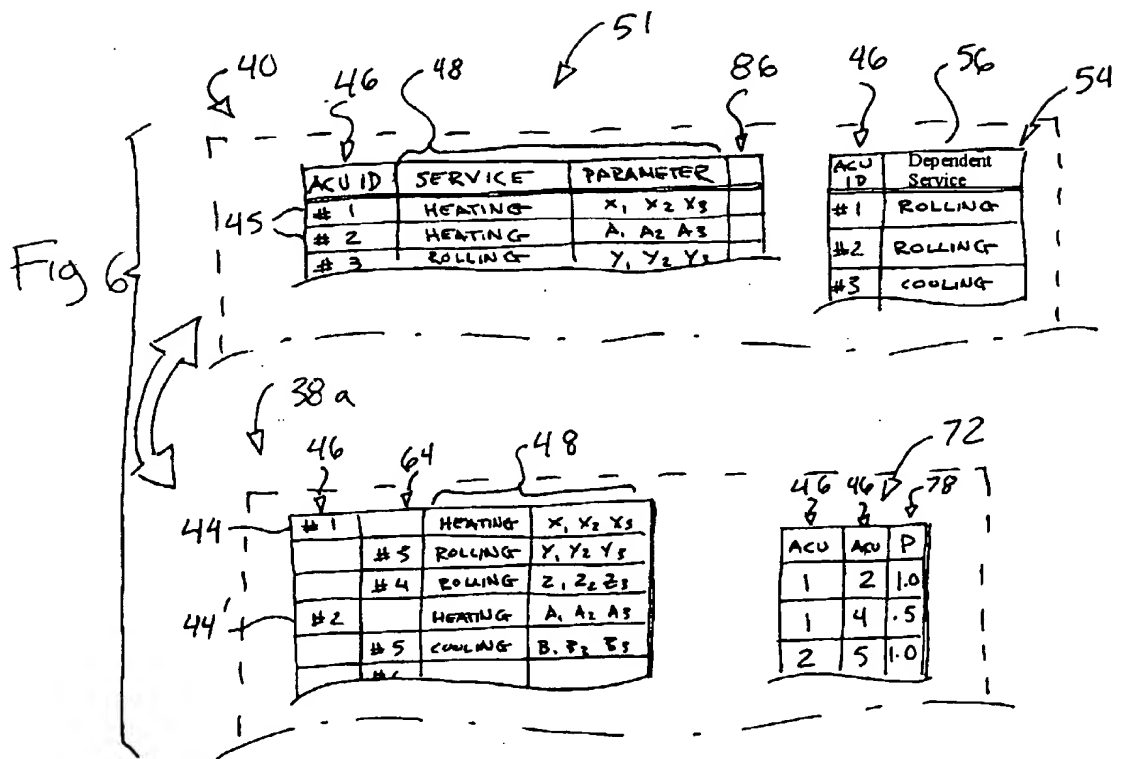 51
40 46 48 86 46 56 54
ACU ID SERVICE PARAMETER
# 1 HEATING X1 X2 X3
# 2 HEATING A1 A2 A3
# 3 ROLLING Y1 Y2 Y3
45
ACU ID Dependent Service
#1 ROLLING
#2 ROLLING
#3 COOLING
Fig 6
38a
46 64 48 72
46 46 78
44 #1 HEATING X1 X2 X3
#3 ROLLING Y1 Y2 Y3
#4 ROLLING Z1 Z2 Z3
44' #2 HEATING A1 A2 A3
#5 COOLING B1 B2 B3
ACU ACU P
1 2 1.0
1 4 .5
2 5 1.0